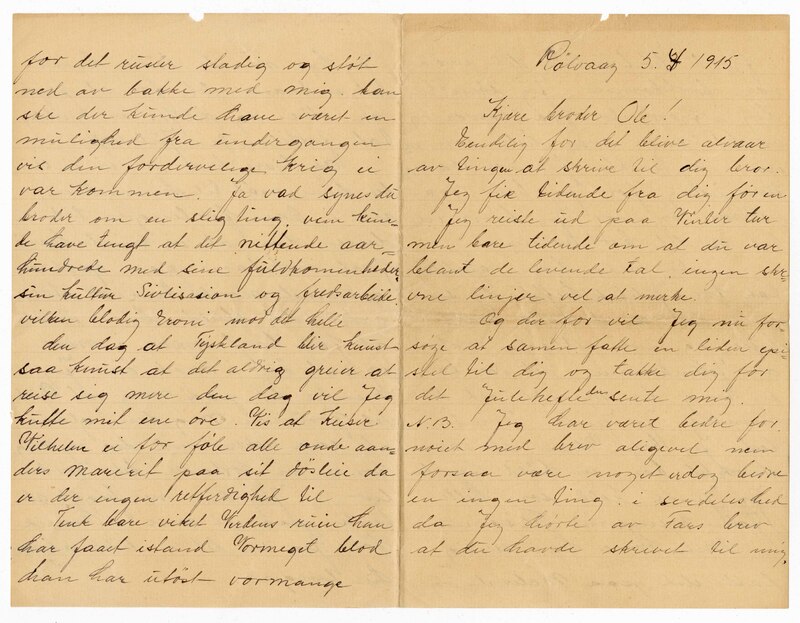 for det rusler stadig og støt
ned av bakke med mig. kan
ske der kunde have været en
mulighed fra undergangen
vis den fordervelige krig ei
var kommen. Ja vad synes du
broder om en slig ting vem kun-
de have tengt at det nittende aar-
hundrede med sine fuldkommenheder
sin kultur Sivilisasion og fredsarbeide.
vilken blodig Ironi mod det hele
den dag at Tyskland blir knust
saa knust at det aldrig greier at
reise sig mere den dag vil Jeg
kutte mit ene øre. Vis at Keiser
Vilhelm ei for føle alle onde aan-
ders marerit paa sit dösleie da
er der ingen retferdighed til
Tenk bare viket Verdens ruin han
har faaet istand Vormeget blod
han har utöst vormange
Rölvaag 5. 4 1915
Kjære broder Ole!
Eendelig for det blive alvaar
av tingen at skrive til dig bror.
Jeg fik tidende fra dig før en
Jeg reiste ud paa Vinter tur
men bare tidende om at du var
blant de levende tal, ingen skr-
vne linjer vel at merke.
Og der for vil Jeg nu for-
søge at samen fatte en liden epi-
stel til dig og takke dig for
det Julehefte du sente mig.
N.B. Jeg har været bedre for-
nøiet med brev aligevel men
forsaa være noget erdog bedre
en ingen ting. i serdeleshed
da Jeg hörte av Fars brev
at du havde skrevet til mig.